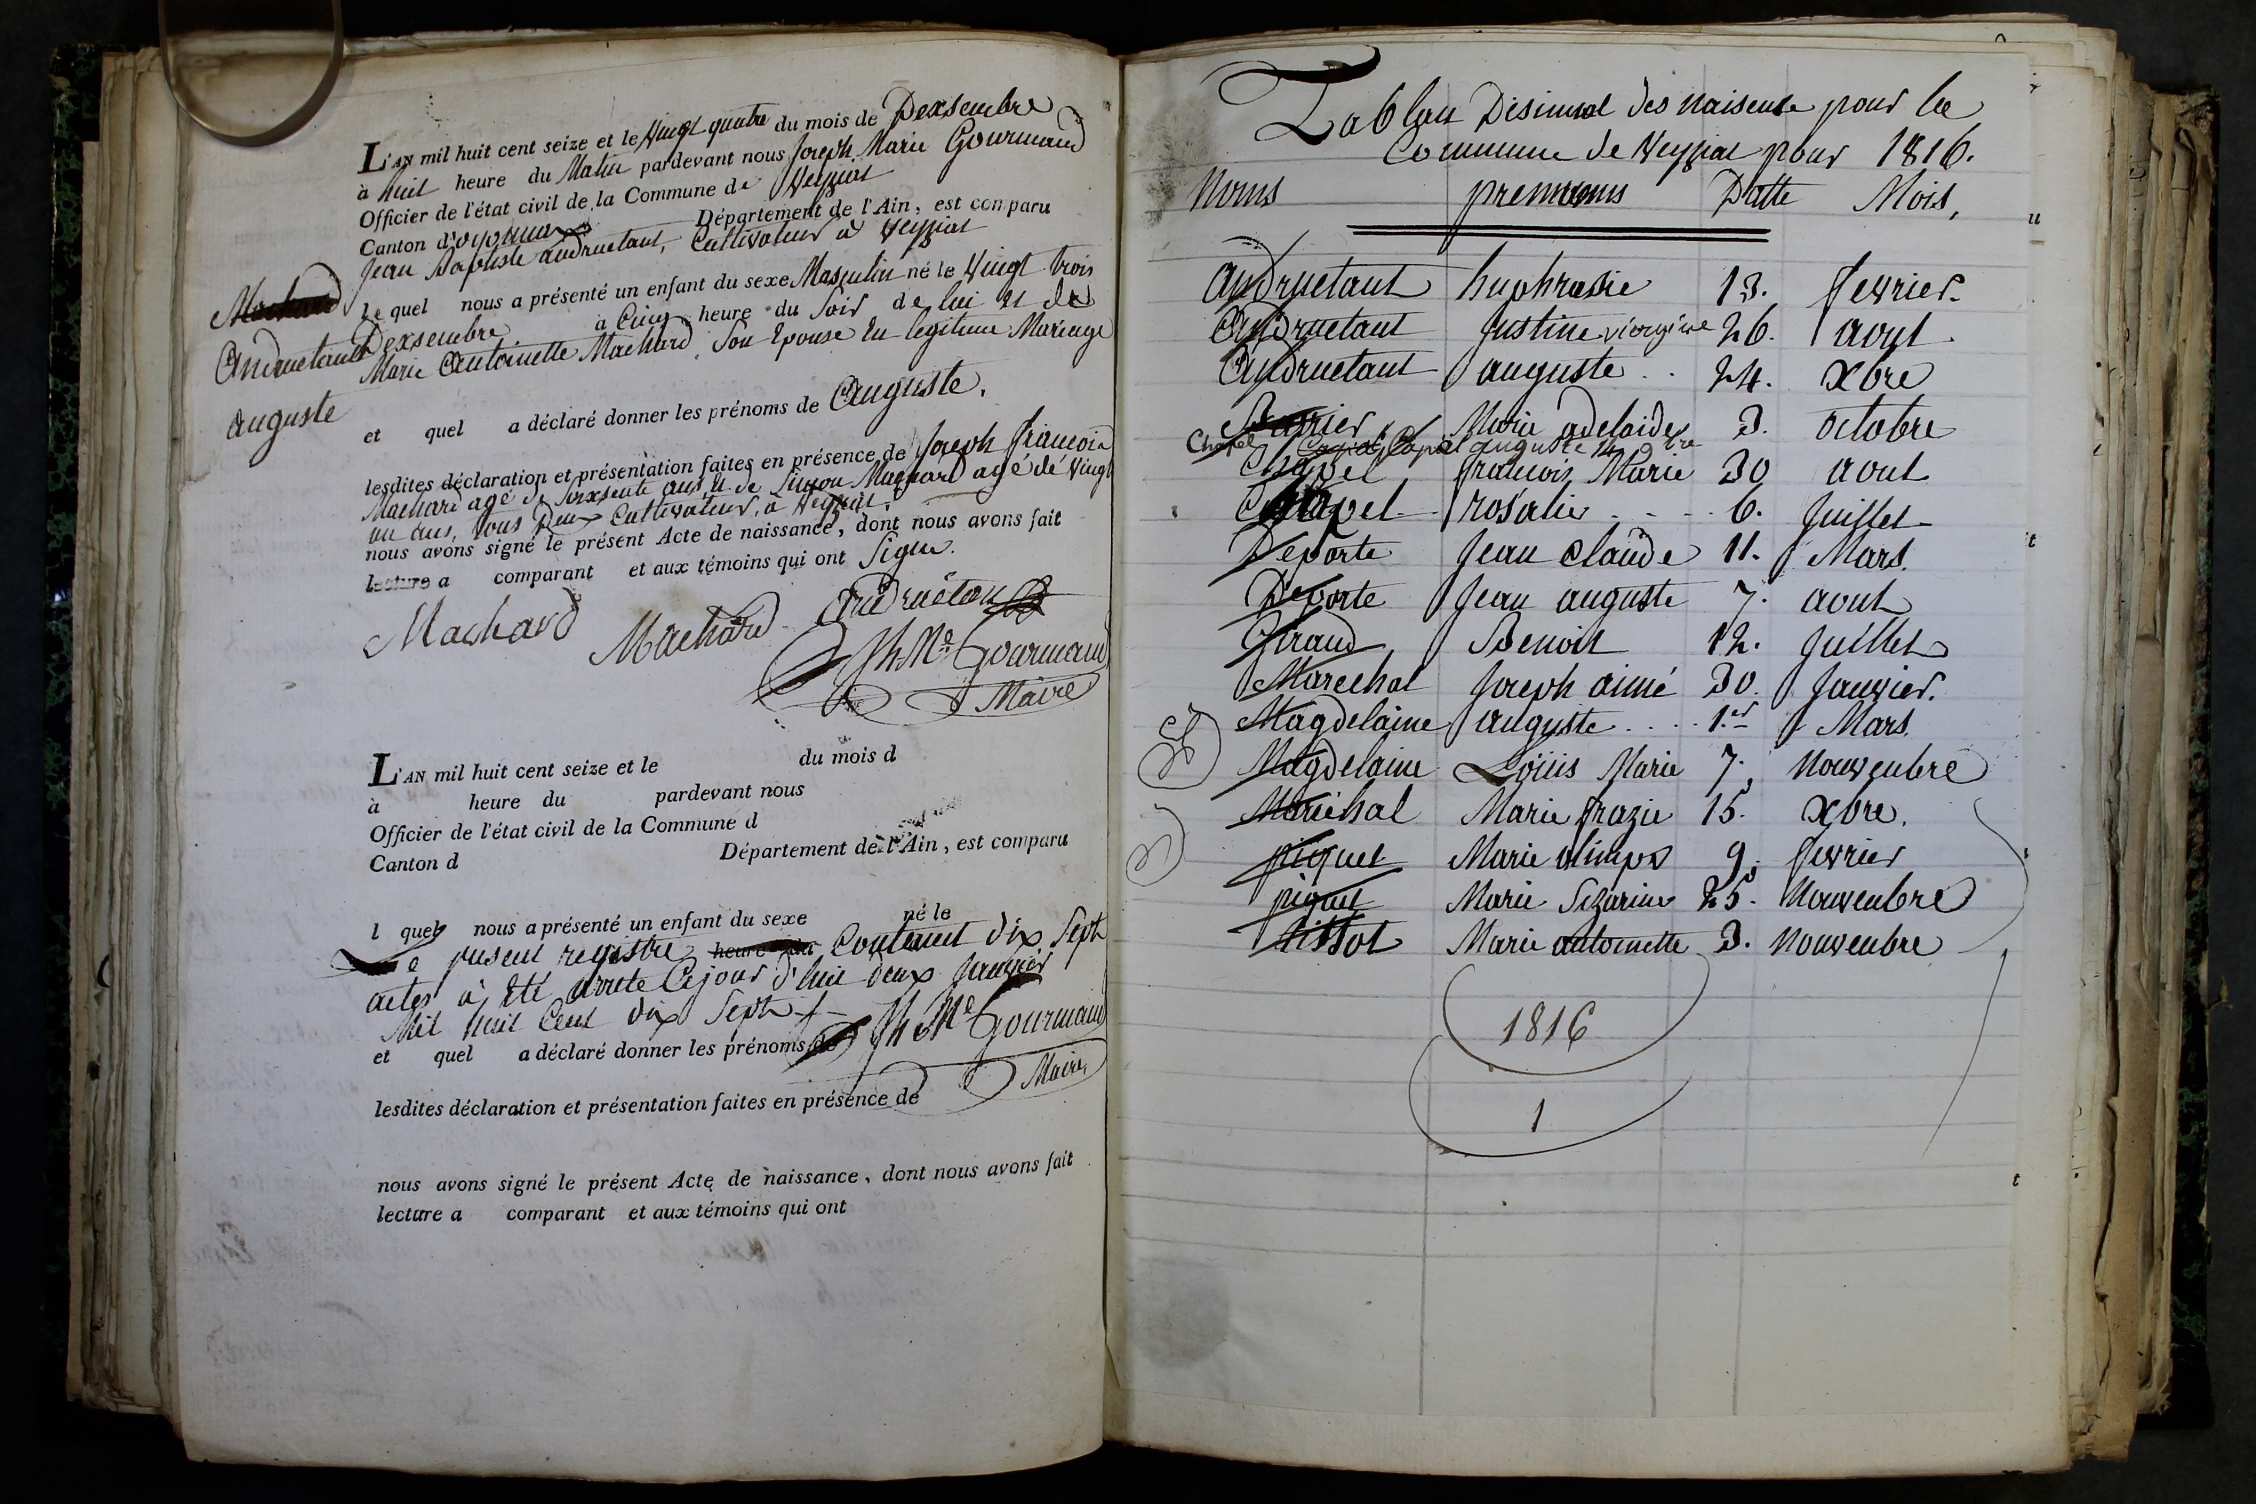 L'AN mil huit cent seize et le Vingt quatre du mois de Dexsembre
à huit heure du Matin pardevant nous Joseph Marie Gourmand
Officier de l'état civil de la Commune de Veyziat
Canton d'oyonnax Département de l'Ain, est comparu
Jean Baptiste andruetant, Cultivateur a Veyziat
le quel nous a présenté un enfant du sexe Masculin né le Vingt trois
Dexsembre à Cinq heure du Soir de lui et de
Marie Antoinette Machard Son Epouse En legitime Mariage
Machard
Andruetant
auguste
et quel a déclaré donner les prénoms de Auguste.
lesdites déclaration et présentation faites en présence de Joseph francois
Machard agé de Soixsente ans, et de Simon Machard agé dé Vingt
un ans, tous Deux Cultivateurs, a Veyziat.
nous avons signé le présent Acte de naissance, dont nous avons fait
lecture a comparant et aux témoins qui ont Signe.
Machard Machard Andruétan
Jh Me Gourmand
Maire
L'AN mil huit cent seize et le du mois d
à heure du pardevant nous
Officier de l'état civil de la Commune d
Canton d Département de l'Ain, est comparu
l quel nous a présenté un enfant du sexe né le
Le present registre heure du Contenent dix Sept
actes à, Eté arrete Cejour d'hui deux Janvier
Mil huit Cent dix Sept
Jh Me Gourmand
et quel a déclaré donner les prénoms de
Maire,
lesdites déclaration et présentation faites en présence de
nous avons signé le présent Acte de naissance, dont nous avons fait
lecture a comparant et aux témoins qui ont
Tablau Desimal des naisense pour la
Commune de Veyziat pour 1816.
Noms prenoms Datte Mois,
Andruetant huphrasie 13. fevrier.
Andruetant Justine viergine 26. aout
Andruetant auguste . . 24. Xbre
Marie adelaide 3. octobre
Chapel auguste 14 bre
Chapel francois Marie 30 aout
Chapel rosalie - - - 6. Juillet
Deporte Jean Claude 11. Mars.
Deporte Jean auguste 7. aout
Giraud Benoit 12. Juillet
Marechal Joseph aimé 30. Janvier.
Magdelaine auguste . . . . 1.er Mars.
Magdelaine Loüis Marie 7. Nouvenbre
Maréhal Marie frazie 15. Xbre.
piquet Marie olimpe 9. fevrier
piquet Marie Sezarine 25. Nouvenbre
tissot Marie antoinette 3. Nouvenbre
1816
1